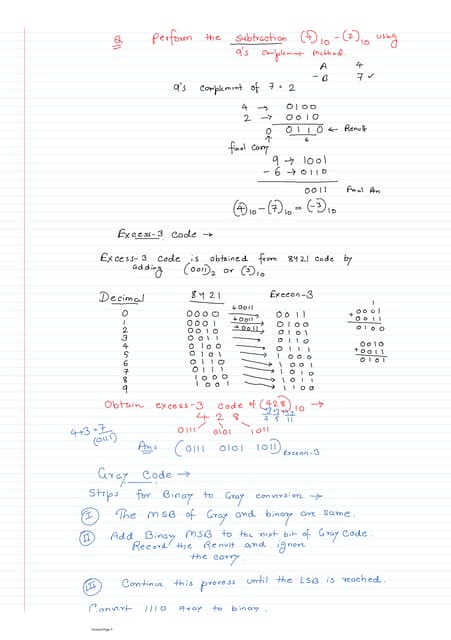 Q Perform the subtraction (4)10 - (7)10 using
9's complement method.
A 4
- B 7 ✓
9's complement of 7 = 2
4 → 0100
2 → 0010
0 0110 ← Result
6
final carry
9 → 1001
- 6 → 0110
0011 Final An
(4)10 - (7)10 = (-3)10
Excess-3 code →
Excess-3 code is obtained from 8421 code by
adding (0011)2 or (3)10
Decimal 8421 Excess-3
0 0000 +0011 → 0011
1 0001 +0011 → 0100
2 0010 +0011 → 0101
3 0011 → 0110
4 0100 → 0111
5 0101 → 1000
6 0110 → 1001
7 0111 → 1010
8 1000 → 1011
9 1001 → 1100
1
0001
+0011
0100
0010
+0011
0101
Obtain excess-3 code of (428)10 →
+3 +3 +3
7 5 11
4 2 8
0111 0101 1011
4+3=7
(0111)
Ans (0111 0101 1011) Excess-3
Gray Code →
Steps for Binary to Gray conversion →
I The MSB of Gray and binary are same.
II Add Binary MSB to the next bit of Gray Code.
Record the Result and ignore
the carry.
III Continue this process until the LSB is reached.
Convert 1110 gray to binary.